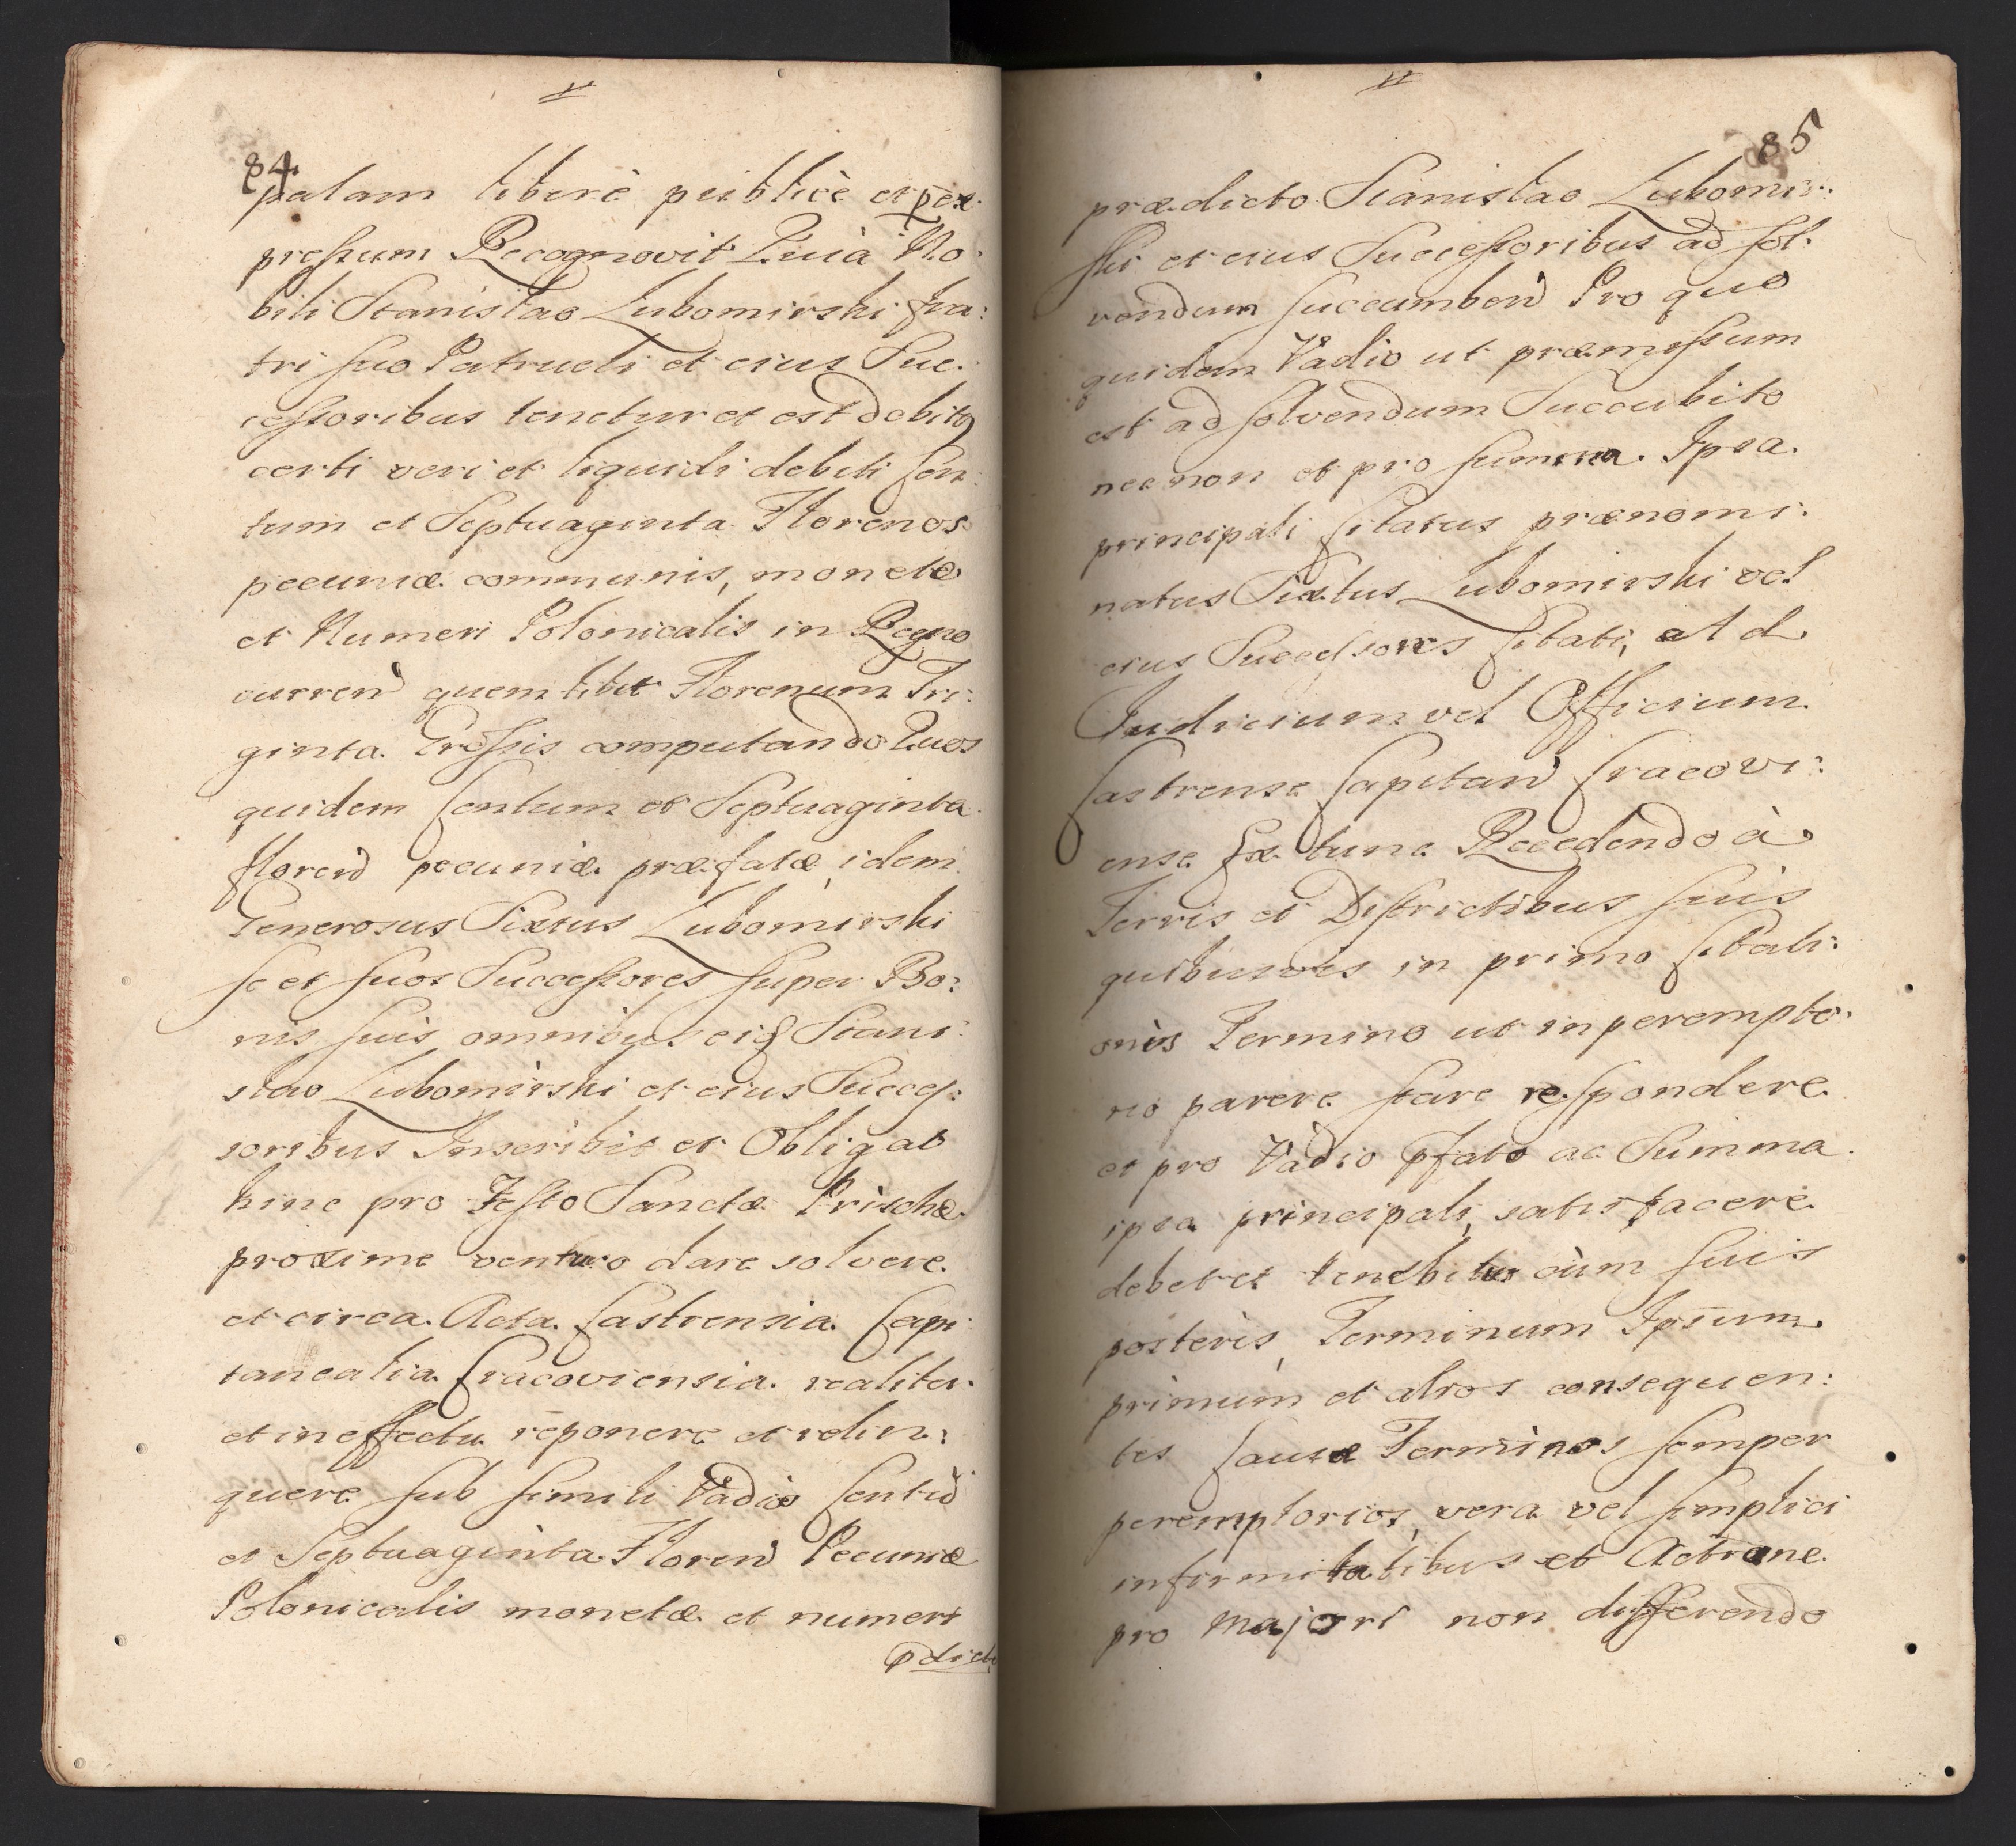 84
palam liberè publicè et per ex-
pressum Recognovit Quia No-
bili Stanislao Lubomirski fra:
tri suo Patrueli et eius Suc-
cessoribus tenetur et est debitor
certi veri et liquidi debiti Cen
tum et Septuaginta Florenos
pecuniæ communis, monetæ
et Numeri Polonicalis in Regno
curren quemlibet Florenum Tri:
ginta Grossis computando Quos
quidem Centum et Septuaginta
floren pecuniæ præfatæ idem
Generosus Sixtus Lubomirski
se et suos Successores super Bo:
nis suis omnibus eid Stani
slao Lubomirski et eius Succes:
soribus Inscribit et Obligat
hinc pro Festo Sanctæ Prischæ
proxime venturo dare solvere
et circa Acta Castrensia Capi
tanealia Cracoviensia realiter
et in effectu reponere et relin:
quere sub simili Vadio Centu
et Septuaginta Floren Pecuniæ
Polonicalis monetæ et numeri
pdicti
85
prædicto Stanislao Lubomir:
ski et eius Successoribus ad sol-
vendum succumben Pro quo
quidem Vadio ut præmissum
est ad solvendum Succubito
necnon et pro summa Ipsa
principali Citatus prænomi-
natus Sixtus Lubomirski vel
eius Successores Citati, ad
Judicium vel Officium
Castrense Capitan Cracovi:
ense Ex tunc Recedendo à
Terris et Districtibus suis
quibusvis in primo Citati:
onis Termino ut in perempto-
rio parere stare respondere
et pro Vadio pfato ac Summa
ipsa principali, satisfacere
debet et tenebitur cùm suis
posteris, Terminum Ipsum
primum et alios consequen:
tes Causæ Terminos semper
peremptorios, vera vel simplici
infirmitatibus et Actione
pro majori non differendo